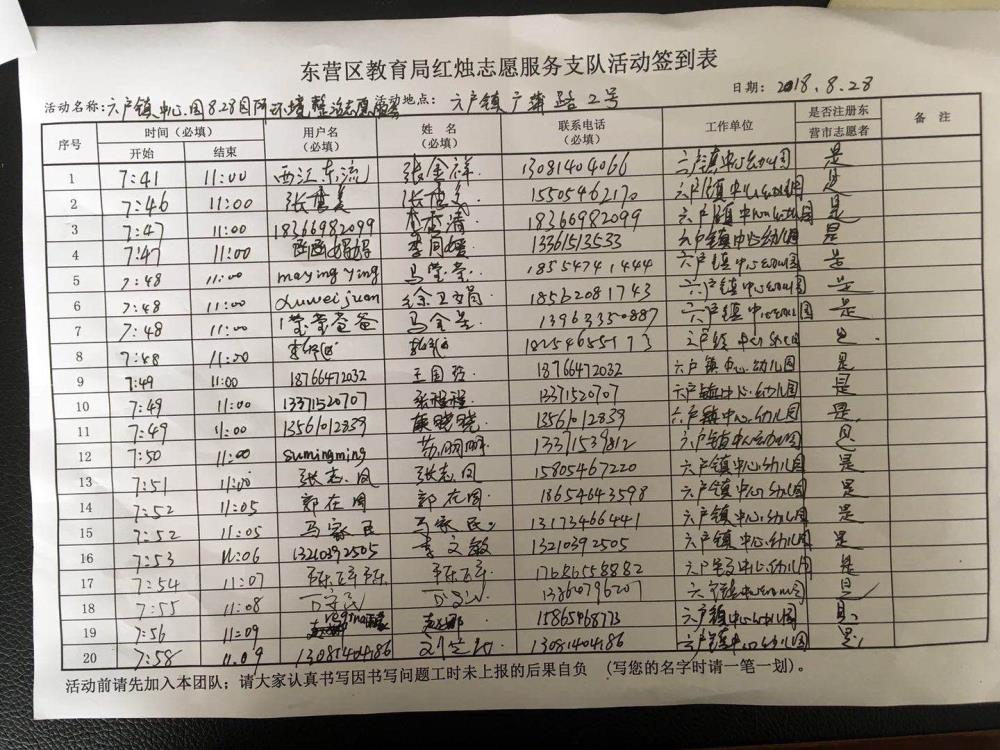 东营区教育局红烛志愿服务支队活动签到表
日期: 2018.8.28
活动名称: 六户镇中心园8.28园所环境整治志愿服务 活动地点: 六户镇广蒲路2号
序号 时间(必填) 用户名(必填) 姓名(必填) 联系电话(必填) 工作单位 是否注册东营市志愿者 备注
开始 结束
1 7:41 11:00 西江东流 张金祥 13081404066 六户镇中心幼儿园 是
2 7:46 11:00 15505462170 六户镇中心幼儿园 是
3 7:47 11:00 18366982099 18366982099 六户镇中心幼儿园 是
4 7:47 11:00 13361513533 六户镇中心幼儿园 是
5 7:48 11:00 mayingying 马莹莹 18554741444 六户镇中心幼儿园 是
6 7:48 11:00 xuweijuan 徐卫娟 18562081743 六户镇中心幼儿园 是
7 7:48 11:00 莹莹爸爸 马金星 13963350887 六户镇中心幼儿园 是
8 7:48 11:00 六户镇中心幼儿园 是
9 7:49 11:00 18766472032 王国强 18766472032 六户镇中心幼儿园 是
10 7:49 11:00 13371520707 张程程 13371520707 六户镇中心幼儿园 是
11 7:49 11:00 13561012839 康晓晓 13561012839 六户镇中心幼儿园 是
12 7:50 11:00 sumingming 苏明明 13371539812 六户镇中心幼儿园 是
13 7:51 11:00 张志凤 张志凤 15805467220 六户镇中心幼儿园 是
14 7:52 11:05 郭在国 郭在国 18654643598 六户镇中心幼儿园 是
15 7:52 11:05 马家民 马家民 13173466441 六户镇中心幼儿园 是
16 7:53 11:06 13210392505 李文敏 13210392505 六户镇中心幼儿园 是
17 7:54 11:07 17686558882 六户镇中心幼儿园 是
18 7:55 11:08 13860796207 六户镇中心幼儿园 是
19 7:56 11:09 15865468773 六户镇中心幼儿园 是
20 7:58 11:09 13081404186 13081404186 六户镇中心幼儿园 是
活动前请先加入本团队;请大家认真书写因书写问题工时未上报的后果自负 (写您的名字时请一笔一划)。